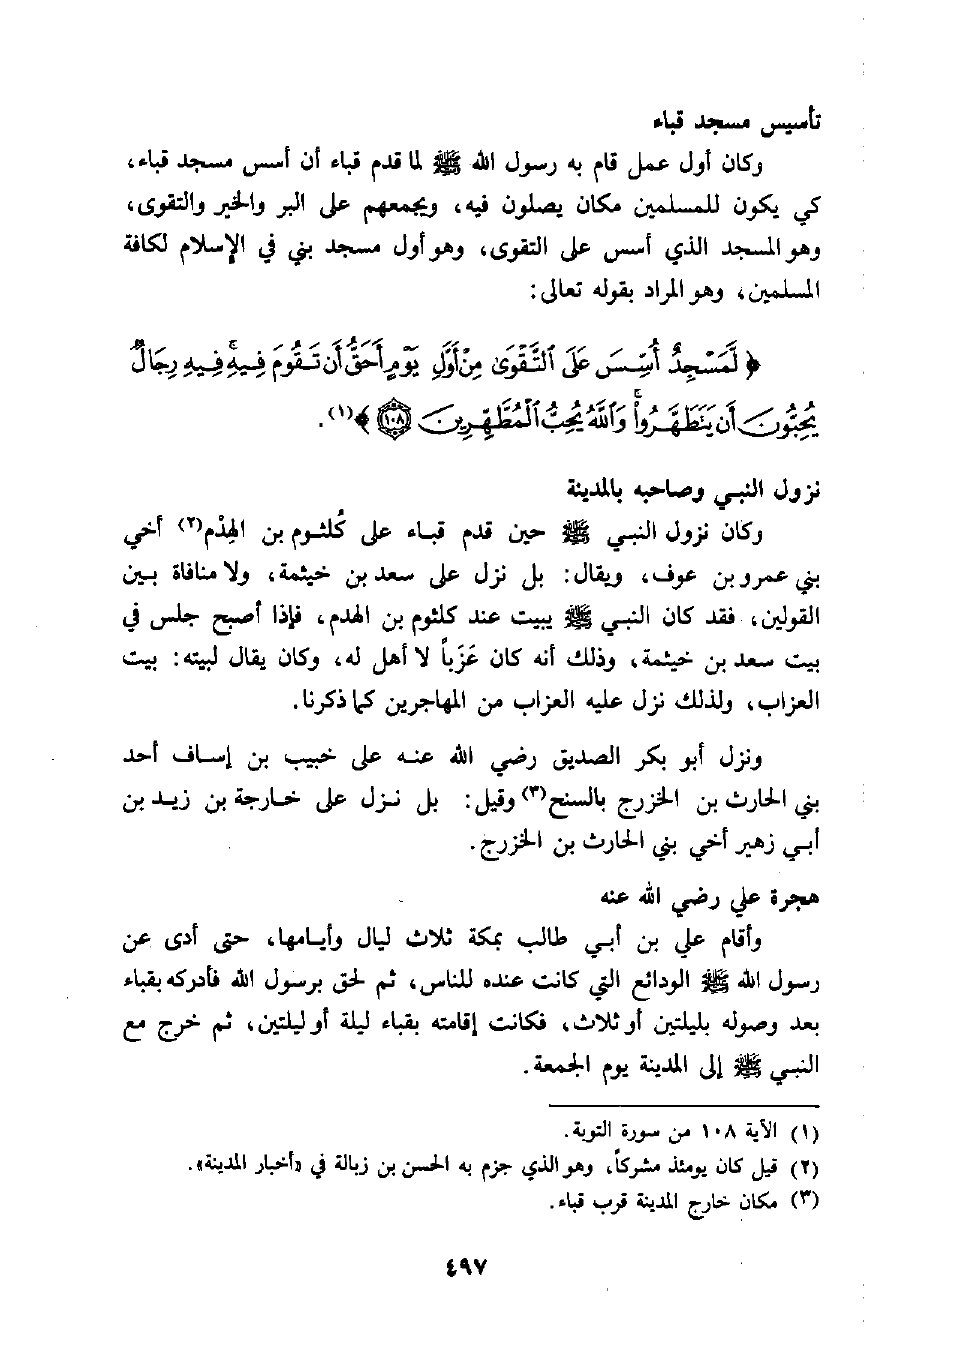 تأسيس مسجد قباء
وكان أول عمل قام به رسول الله ﷺ لما قدم قباء أن أسس مسجد قباء،
كي يكون للمسلمين مكان يصلون فيه، ويجمعهم على البر والخير والتقوى،
وهو المسجد الذي أسس على التقوى، وهو أول مسجد بني في الإسلام لكافة
المسلمين، وهو المراد بقوله تعالى:
﴿ لَّمَسْجِدٌ أُسِّسَ عَلَى ٱلتَّقْوَىٰ مِنْ أَوَّلِ يَوْمٍ أَحَقُّ أَن تَقُومَ فِيهِ ۚ فِيهِ رِجَالٌ
يُحِبُّونَ أَن يَتَطَهَّرُوا۟ ۚ وَٱللَّهُ يُحِبُّ ٱلْمُطَّهِّرِينَ ١٠٨ ﴾(١).
نزول النبي وصاحبه بالمدينة
وكان نزول النبي ﷺ حين قدم قباء على كُلثوم بن الهِدْم(٢) أخي
بني عمرو بن عوف، ويقال: بل نزل على سعد بن خيثمة، ولا منافاة بين
القولين، فقد كان النبي ﷺ يبيت عند كلثوم بن الهدم، فإذا أصبح جلس في
بيت سعد بن خيثمة، وذلك أنه كان عَزَباً لا أهل له، وكان يقال لبيته: بيت
العزاب، ولذلك نزل عليه العزاب من المهاجرين كما ذكرنا.
ونزل أبو بكر الصديق رضي الله عنه على خبيب بن إساف أحد
بني الحارث بن الخزرج بالسنح(٣) وقيل: بل نزل على خارجة بن زيد بن
أبي زهير أخي بني الحارث بن الخزرج.
هجرة علي رضي الله عنه
وأقام علي بن أبي طالب بمكة ثلاث ليال وأيامها، حتى أدى عن
رسول الله ﷺ الودائع التي كانت عنده للناس، ثم لحق برسول الله فأدركه بقباء
بعد وصوله بليلتين أو ثلاث، فكانت إقامته بقباء ليلة أو ليلتين، ثم خرج مع
النبي ﷺ إلى المدينة يوم الجمعة.
(١) الآية ١٠٨ من سورة التوبة.
(٢) قيل كان يومئذ مشركاً، وهو الذي جزم به الحسن بن زبالة في «أخبار المدينة».
(٣) مكان خارج المدينة قرب قباء.
٤٩٧